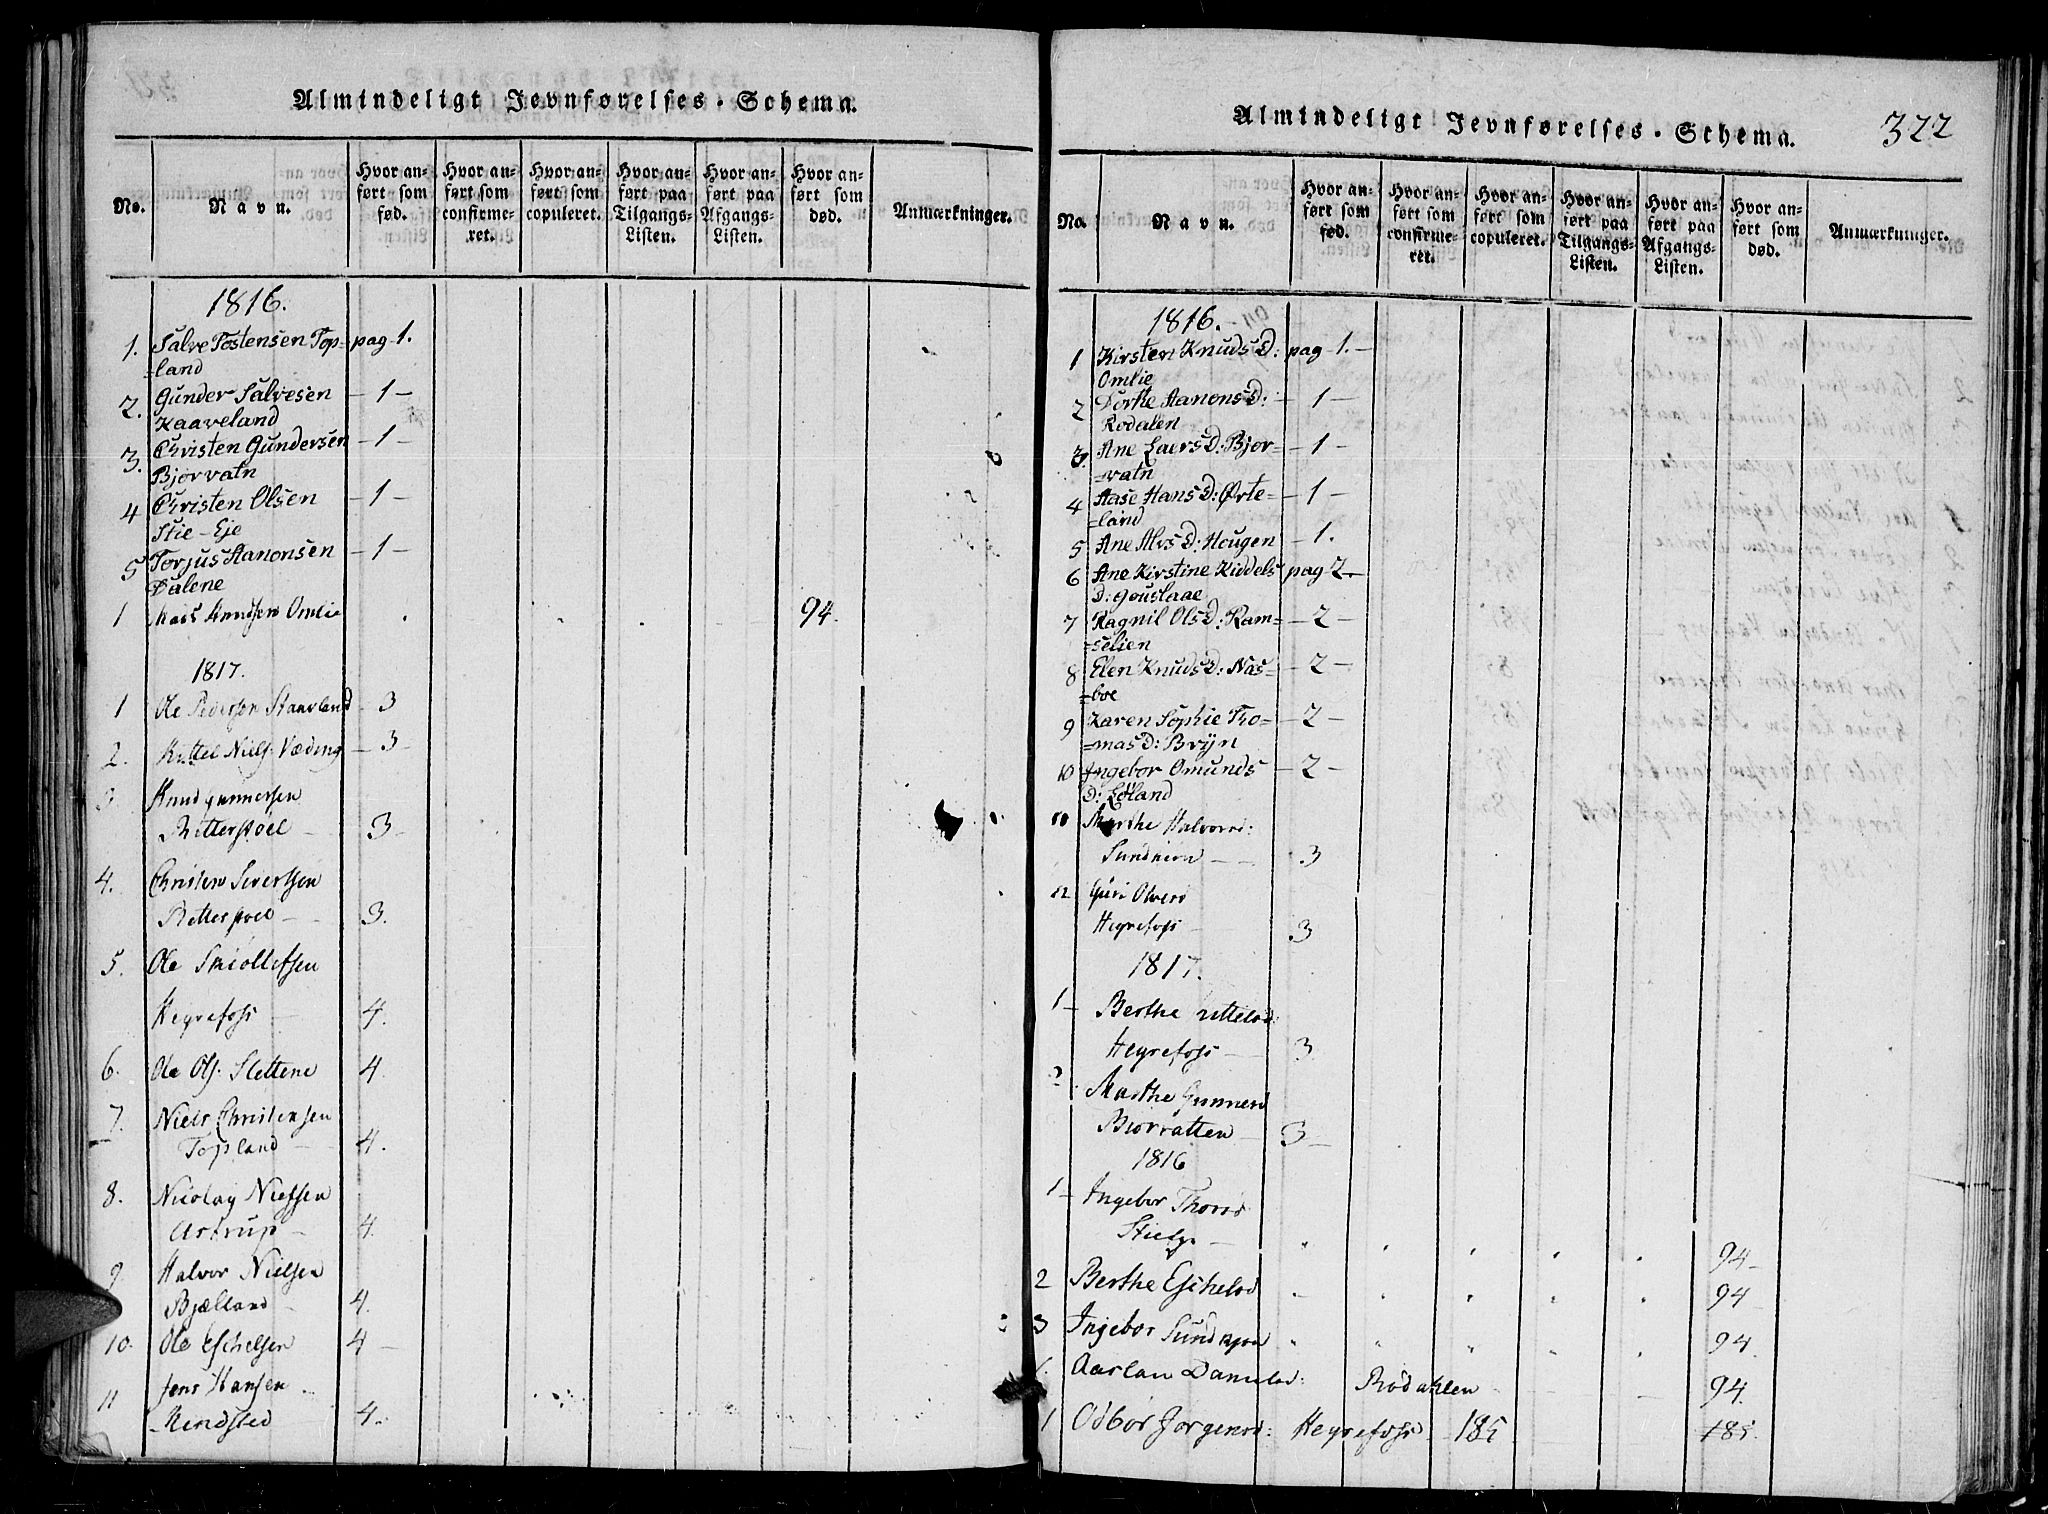 Almindeligt Jevnførelses-Schema.
No.
Navn.
Hvor an-
ført som
fød.
Hvor an-
ført som
confirme-
ret.
Hvor an-
ført som
copuleret.
Hvor an-
ført paa
Tilgangs-
Listen.
Hvor an-
ført paa
Afgangs-
Listen.
Hvor an-
ført som
død.
Anmærkninger.
1816.
1. Salve Tostensen Top- pag 1.
=land
2. Gunder Salvesen - 1 -
Kaaveland
3. Christen Gundersen - 1 -
Bjorvatn
4 Christen Olsen - 1 -
Stie-Eje
5 Torjus Aanonsen - 1 -
Dalene
1 Mads Knudsen Omlie 94.
1817.
1 Ole Pedersen Staavland - 3
2. Kittel Niels: Væding - 3
3. Knud Gunnersen
Ritterstøel - 3 -
4. Christen Sivertsen
Ritterstoel - 3.
5. Ole Skiollefsen
Hegrefoss - 4.
6. Ole Ols: Slettene 4.
7. Niels Christensen
Topland - 4.
8. Nicolay Nielsen
Askrup - 4.
9. Halvor Nielsen
Bjælland - 4.
10. Ole Eschelsen 4 -
11 Jens Hansen
Rendsted 4.
Almindeligt Jevnførelses-Schema. 322
No.
Navn.
Hvor an-
ført som
fød.
Hvor an-
ført som
confirme-
ret.
Hvor an-
ført som
copuleret.
Hvor an-
ført paa
Tilgangs-
Listen.
Hvor an-
ført paa
Afgangs-
Listen.
Hvor an-
ført som
død.
Anmærkninger.
1816.
1 Kirsten Knuds D: pag 1. -
Omlie
2 Dorthe Aanons D: - 1 -
Rodalen
3. Ane Laers D: Bjor- - 1 -
=vatn
4 Aase Hans D: Ørte- - 1 -
=land
5 Ane Alvs D: Hougen - 1.
6 Ane Kirstine Kiddels pag 2.
D: Gouslaae
7 Ragnil Ols D: Ram- - 2 -
=selien
8 Elen Knuds D: Nas- - 2 -
=boe
9 Karen Sophie Tho- - 2 -
=mas D: Bryn
10 Ingebor Omunds - 2 -
D: Løland
11 Marthe Halvors:
Sundkien - 3
12 Guri Olvers
Hegrefoss - 3
1817.
1 - Berthe Kittelsd:
Hegrefoss - 3
2 Marthe Gunnersd
Biorvatten - 3 -
1816
1 - Ingebor Thorsd
Stieeje - 94 -
2 Berthe Eschelsd 94
3 Ingebor Sundkjon 94
4. Aaslau Danielsd: Rodahlen 94.
1 Odbor Jorgensd: Hegrefoss 185 185.